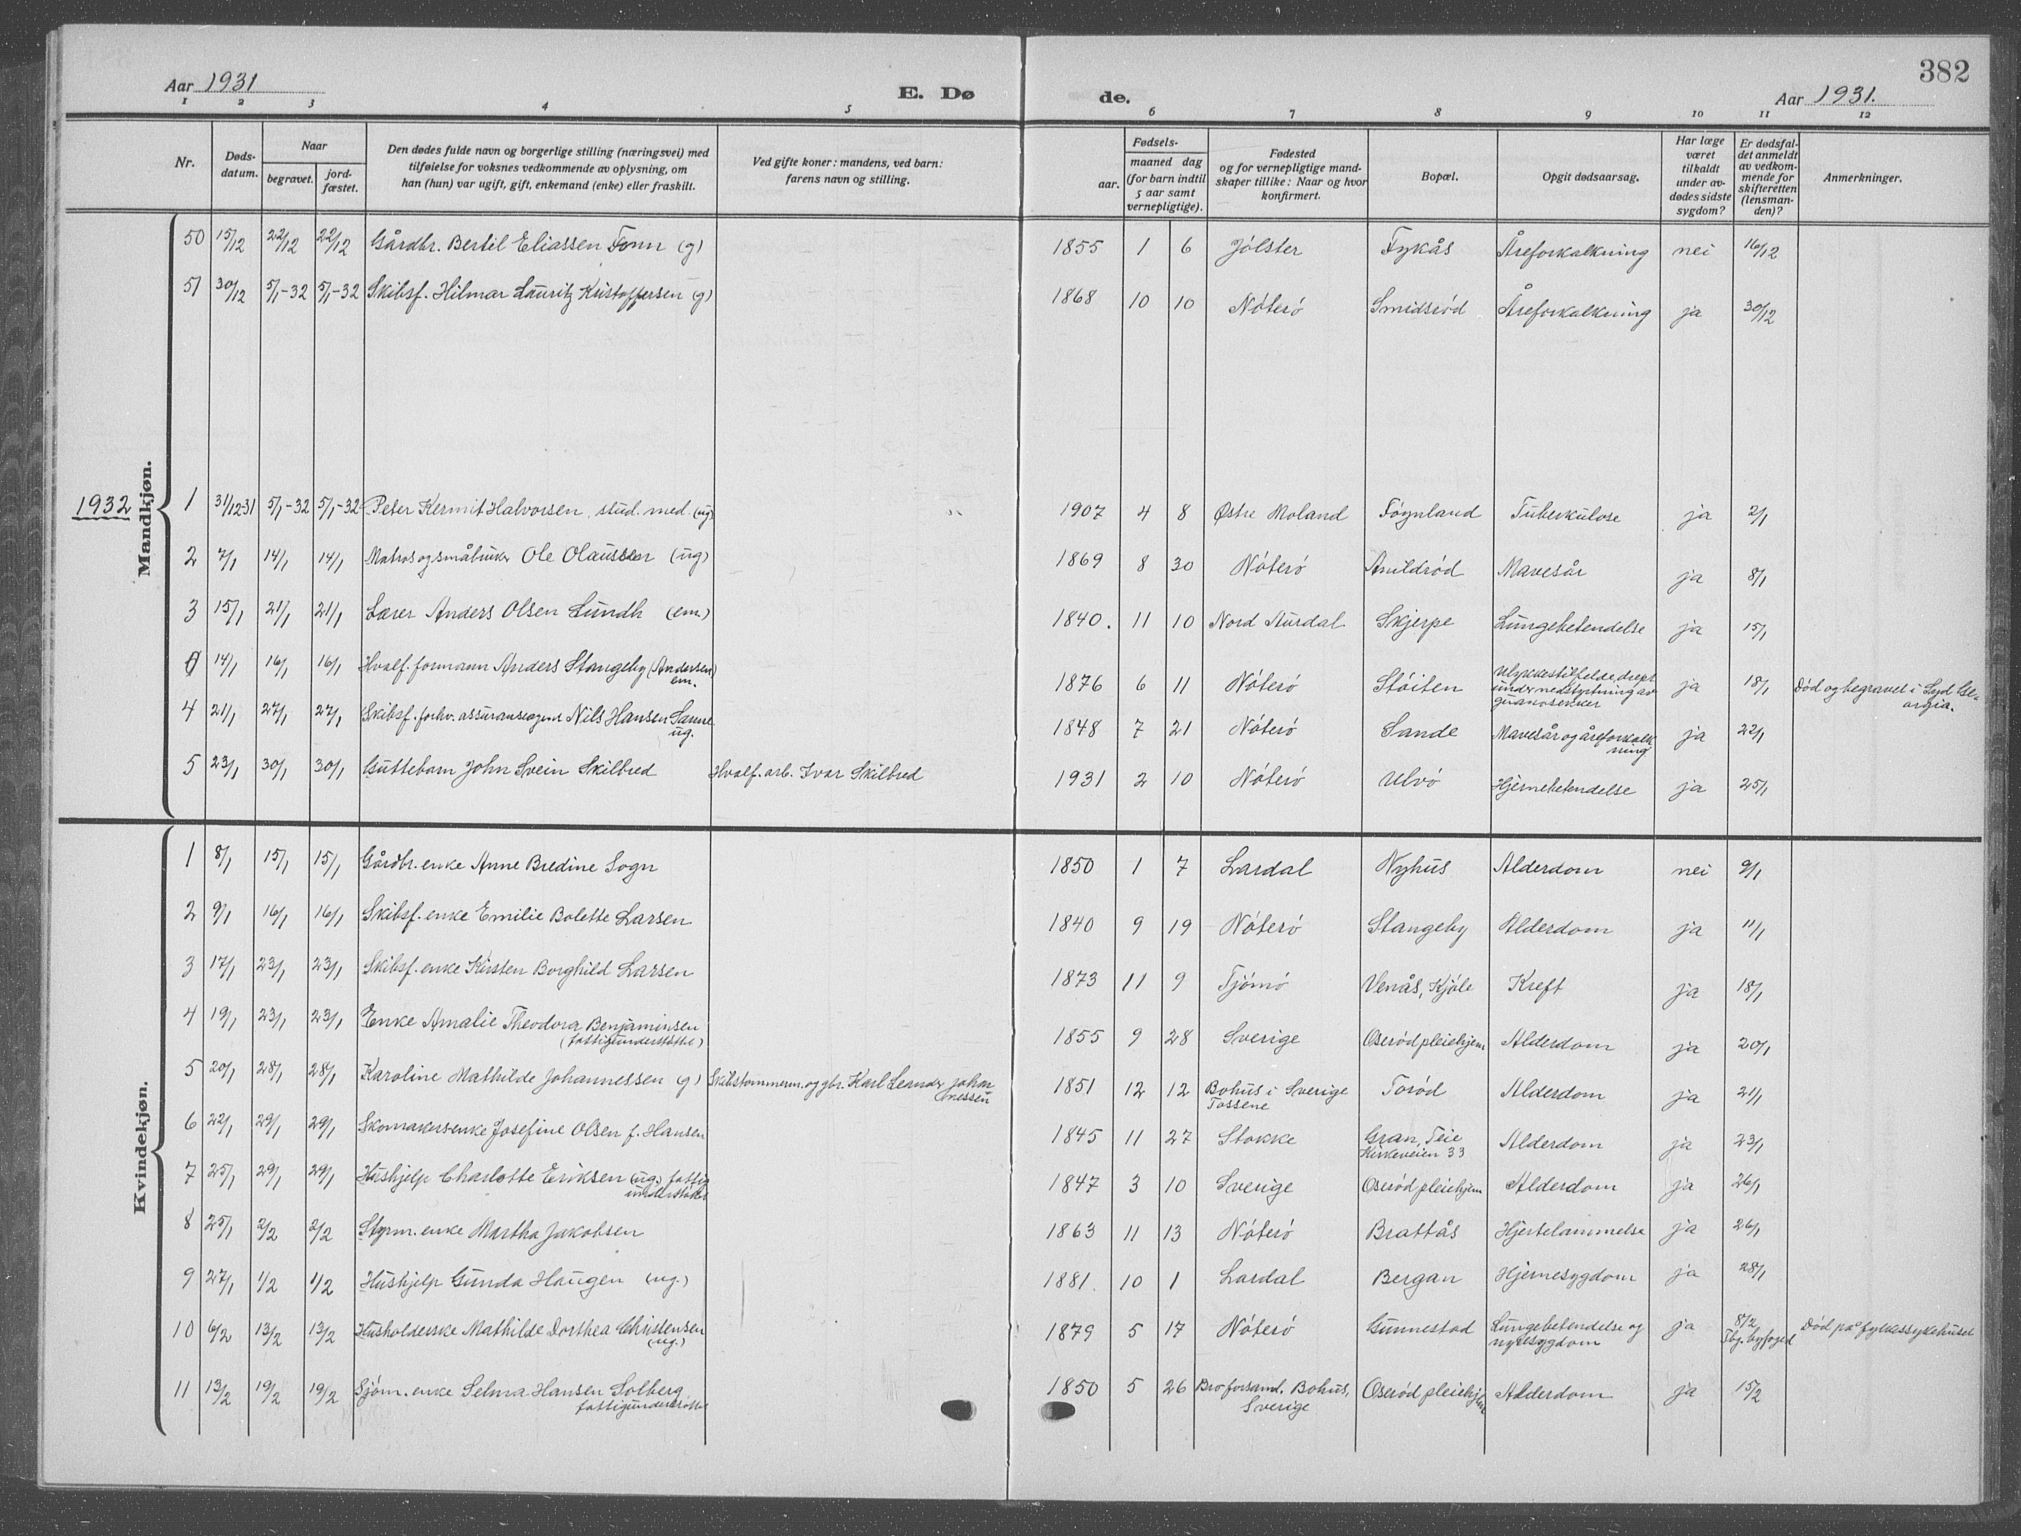 382
Aar 1931
E. Dø de.
Aar 1931.
1 2 3 4 5 6 7 8 9 10 11 12
Nr.
Døds-
datum.
Naar
begravet.
jord-
fæstet.
Den dødes fulde navn og borgerlige stilling (næringsvei) med
tilføielse for voksnes vedkommende av oplysning, om
han (hun) var ugift, gift, enkemand (enke) eller fraskilt.
Ved gifte koner: mandens, ved barn:
farens navn og stilling.
Fødsels-
aar.
maaned dag
(for barn indtil
5 aar samt
vernepligtige).
Fødested
og for vernepligtige mand-
skaper tillike: Naar og hvor
konfirmert.
Bopæl.
Opgit dødsaarsag.
Har læge
været
tilkaldt
under av-
dødes sidste
sygdom?
Er dødsfal-
det anmeldt
av vedkom-
mende for
skifteretten
(lensman-
den)?
Anmerkninger.
Mandkjøn.
50 15/12 22/12 22/12 Gårdbr. Bertil Eliassen Fonn (g) 1855 1 6 Jölster Fykås Åreforkalkning nei 16/12
51 30/12 5/1-32 5/1-32 Skibsf. Hilmar Lauritz Kristoffersen (g) 1868 10 10 Nöterö Smidsröd Åreforkalkning ja 30/12
1932
1 31/12-31 5/1-32 5/1-32 Peter Kermit Halvorsen, stud. med. (ug) 1907 4 8 Östre Moland Föynland Tuberkulose ja 2/1
2 7/1 14/1 14/1 Matros og småbruker Ole Olaussen (ug) 1869 8 30 Nöterö Arildröd Mavesår ja 8/1
3 15/1 21/1 21/1 Lærer Anders Olsen Lundh (em.) 1840. 11 10 Nord Aurdal Skjerpe Lungebetendelse ja 15/1
0 14/1 16/1 16/1 Hvalf. formann Anders Stangeby (Andersen)
em. 1876 6 11 Nöterö Stöiten Ulykkestilfelde, drept
under nedstyrtning av
guanosekker ja 18/1 Död og begravet i Syd Ge-
orgia.
4 21/1 27/1 27/1 Skibsf. forhv. assuranseagent Nils Hansen Sanne
ug. 1848 7 21 Nöterö Sande Mavesår og åreforkalk-
ning ja 22/1
5 23/1 30/1 30/1 Guttebarn John Svein Skilbred Hvalf. arb. Ivar Skilbred 1931 2 10 Nöterö Ulvö Hjernebetendelse ja 25/1
Kvindekjøn.
1 8/1 15/1 15/1 Gårdbr. enke Anne Bredine Sogn 1850 1 7 Lardal Nyhus Alderdom nei 9/1
2 9/1 16/1 16/1 Skibsf. enke Emilie Bolette Larsen 1840 9 19 Nöterö Stangeby Alderdom ja 11/1
3 17/1 23/1 23/1 Skibsf. enke Kirsten Borghild Larsen 1873 11 9 Tjömö Venås, Kjöle Kreft ja 18/1
4 19/1 23/1 23/1 Enke Amalie Theodora Benjaminsen
(fattigunderstøttet) 1855 9 28 Sverige Oseröd pleiehjem Alderdom ja 20/1
5 20/1 28/1 28/1 Karoline Mathilde Johannessen (g) Skibstømmerm. og gbr. Karl Leander Johan-
nessen 1851 12 12 Bohus i Sverige
Tossene Toröd Alderdom ja 21/1
6 22/1 29/1 29/1 Skomakersenke Josefine Olsen f. Hansen 1845 11 27 Stokke Gran, Teie
Kirkeveien 33 Alderdom ja 23/1
7 25/1 29/1 29/1 Hushjelp Charlotte Eriksen (ug.) fattig
understøttet 1847 3 10 Sverige Oseröd pleiehjem Alderdom ja 26/1
8 25/1 2/2 2/2 Styrm. enke Martha Jakobsen 1863 11 13 Nöterö Brattås Hjertelammelse ja 26/1
9 27/1 1/2 1/2 Hushjelp Gunda Haugen (ug.) 1881. 10 1 Lardal Bergan Hjernesygdom ja 28/1
10 6/2 13/2 13/2 Husholderske Mathilde Dorthea Christensen
(ug.) 1879 5 17 Nöterö Gunnestad Lungebetendelse og
nyresygdom ja 8/2
Tbg. byfoged Död på fylkessykehuset
11 13/2 19/2 19/2 Sjöm. enke Selma Hansen Solberg
fattigunderstøttet 1850 5 26 Bro forsaml. Bohus,
Sverige Oseröd pleiehjem Alderdom ja 15/2